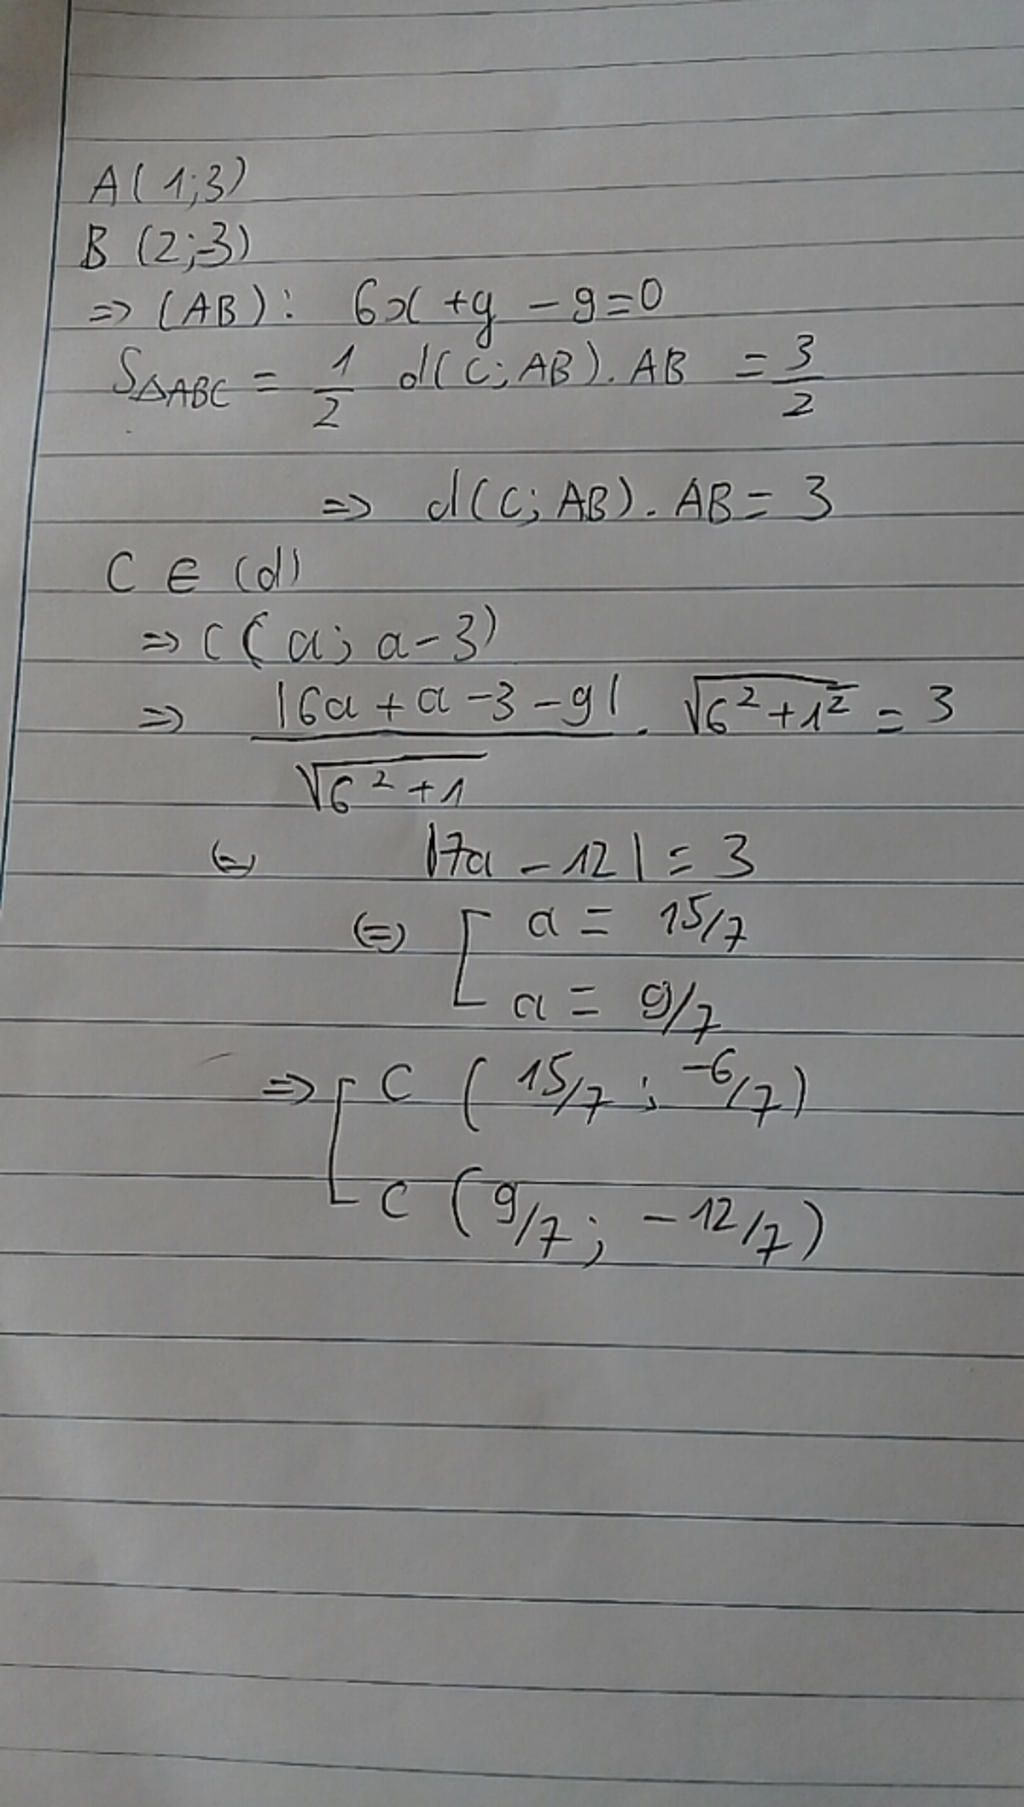 A(1;3)
B (2;-3)
=> (AB): 6x + y - 9 = 0
S△ABC = 1/2 d(C; AB). AB = 3/2
=> d(C; AB). AB = 3
C ∈ (d)
=> C(a; a-3)
=> |6a + a - 3 - 9| / √(6² + 1) . √(6² + 1²) = 3
(=) |7a - 12| = 3
(=) [ a = 15/7
a = 9/7
=> [ C (15/7 ; -6/7)
C (9/7; -12/7)